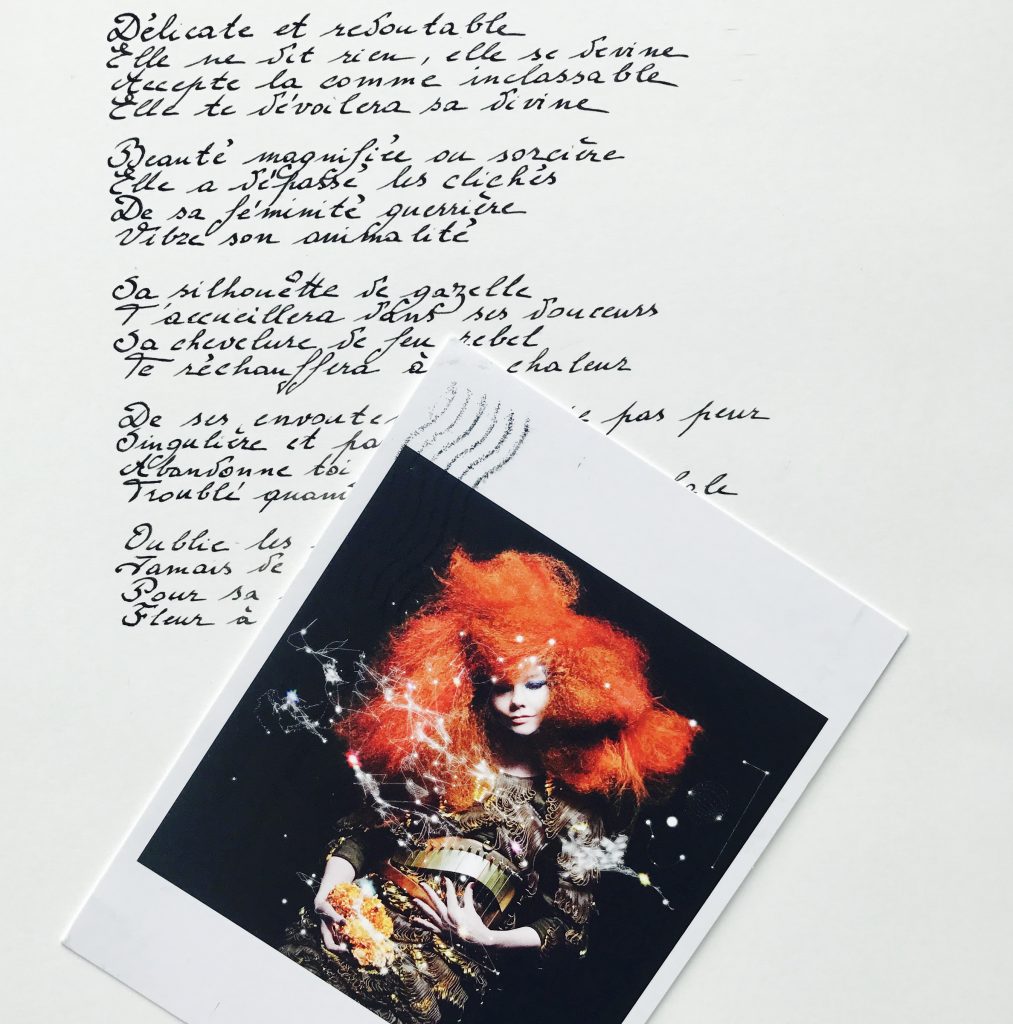 Délicate et redoutable
Elle ne dit rien, elle se devine
Accepte la comme inclassable
Elle te dévoilera sa divine
Beauté magnifiée ou sorcière
Elle a dépassé les clichés
De sa féminité guerrière
Vibre son animalité
Sa silhouëtte de gazelle
T'accueillera dans ses douceurs
Sa chevelure de feu rebel
Te réchauffera à chaleur
De ses pas peur
Singulière et
Abandonne toi
Troublé
Oublie les
Jamais de
Pour sa
Fleur à